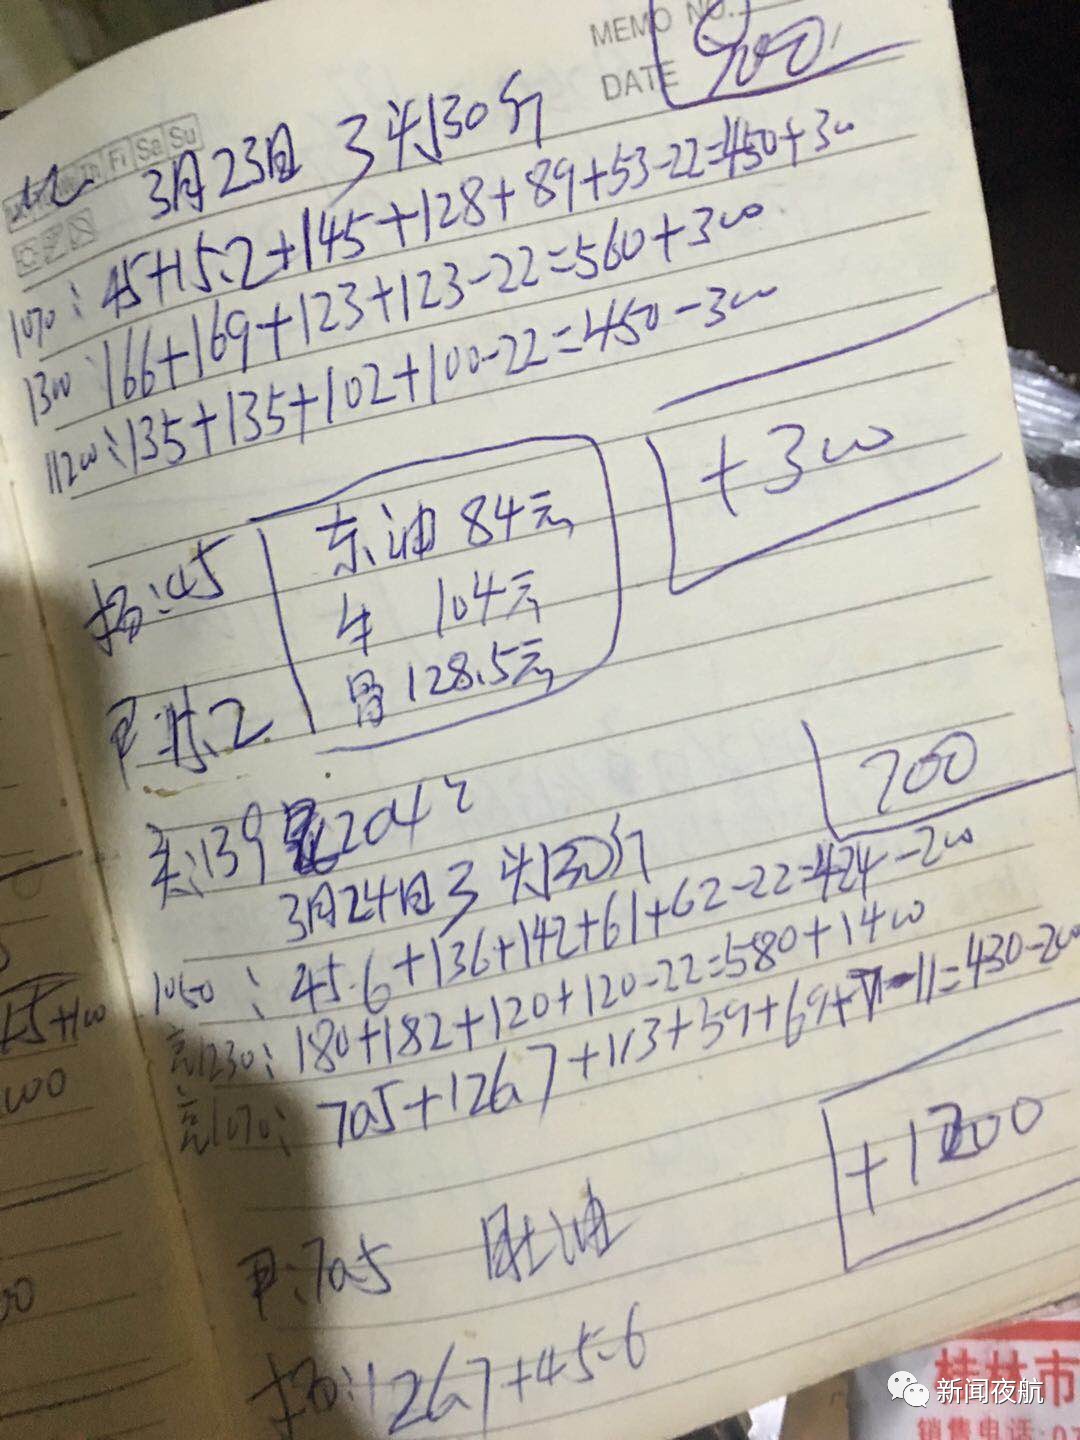 MEMO NO.
DATE
900
Fi Sa Su
3月23日 3头130斤
1070：45+15.2+145+128+89+53-22=450+300
1300：166+169+123+123-22=560+300
11200：135+135+102+100-22=450-300
+300
杨：45
东油 84元
牛 104元
骨 128.5元
：15.2
204
700
3月24日 3头130斤
1050：45.6+136+142+61+62-22=424-200
1230：180+182+120+120-22=580+1400
1070：70.5+126.7+113+59+69+11=430-200
+1200
：70.5 肚油
杨：126.7+45.6
桂林市
销售电话:07
新闻夜航